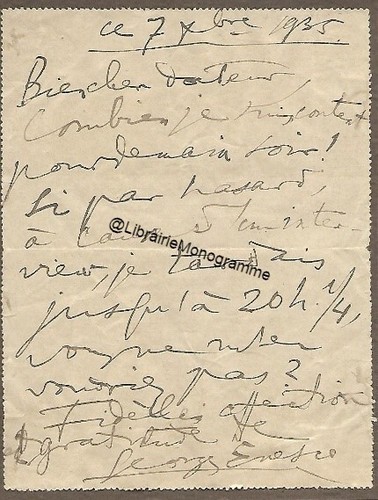 ce 7 xbre 1935.
Bien cher docteur,
Combien je suis content
pour demain soir!
Si par hasard,
à cause d'un inter-
@LibrairieMonogramme
view, je tardais
jusqu'à 20h. 1/4,
vous ne m'en
voudriez pas?
Fidèle affection
& gratitude de
Georges Enesco